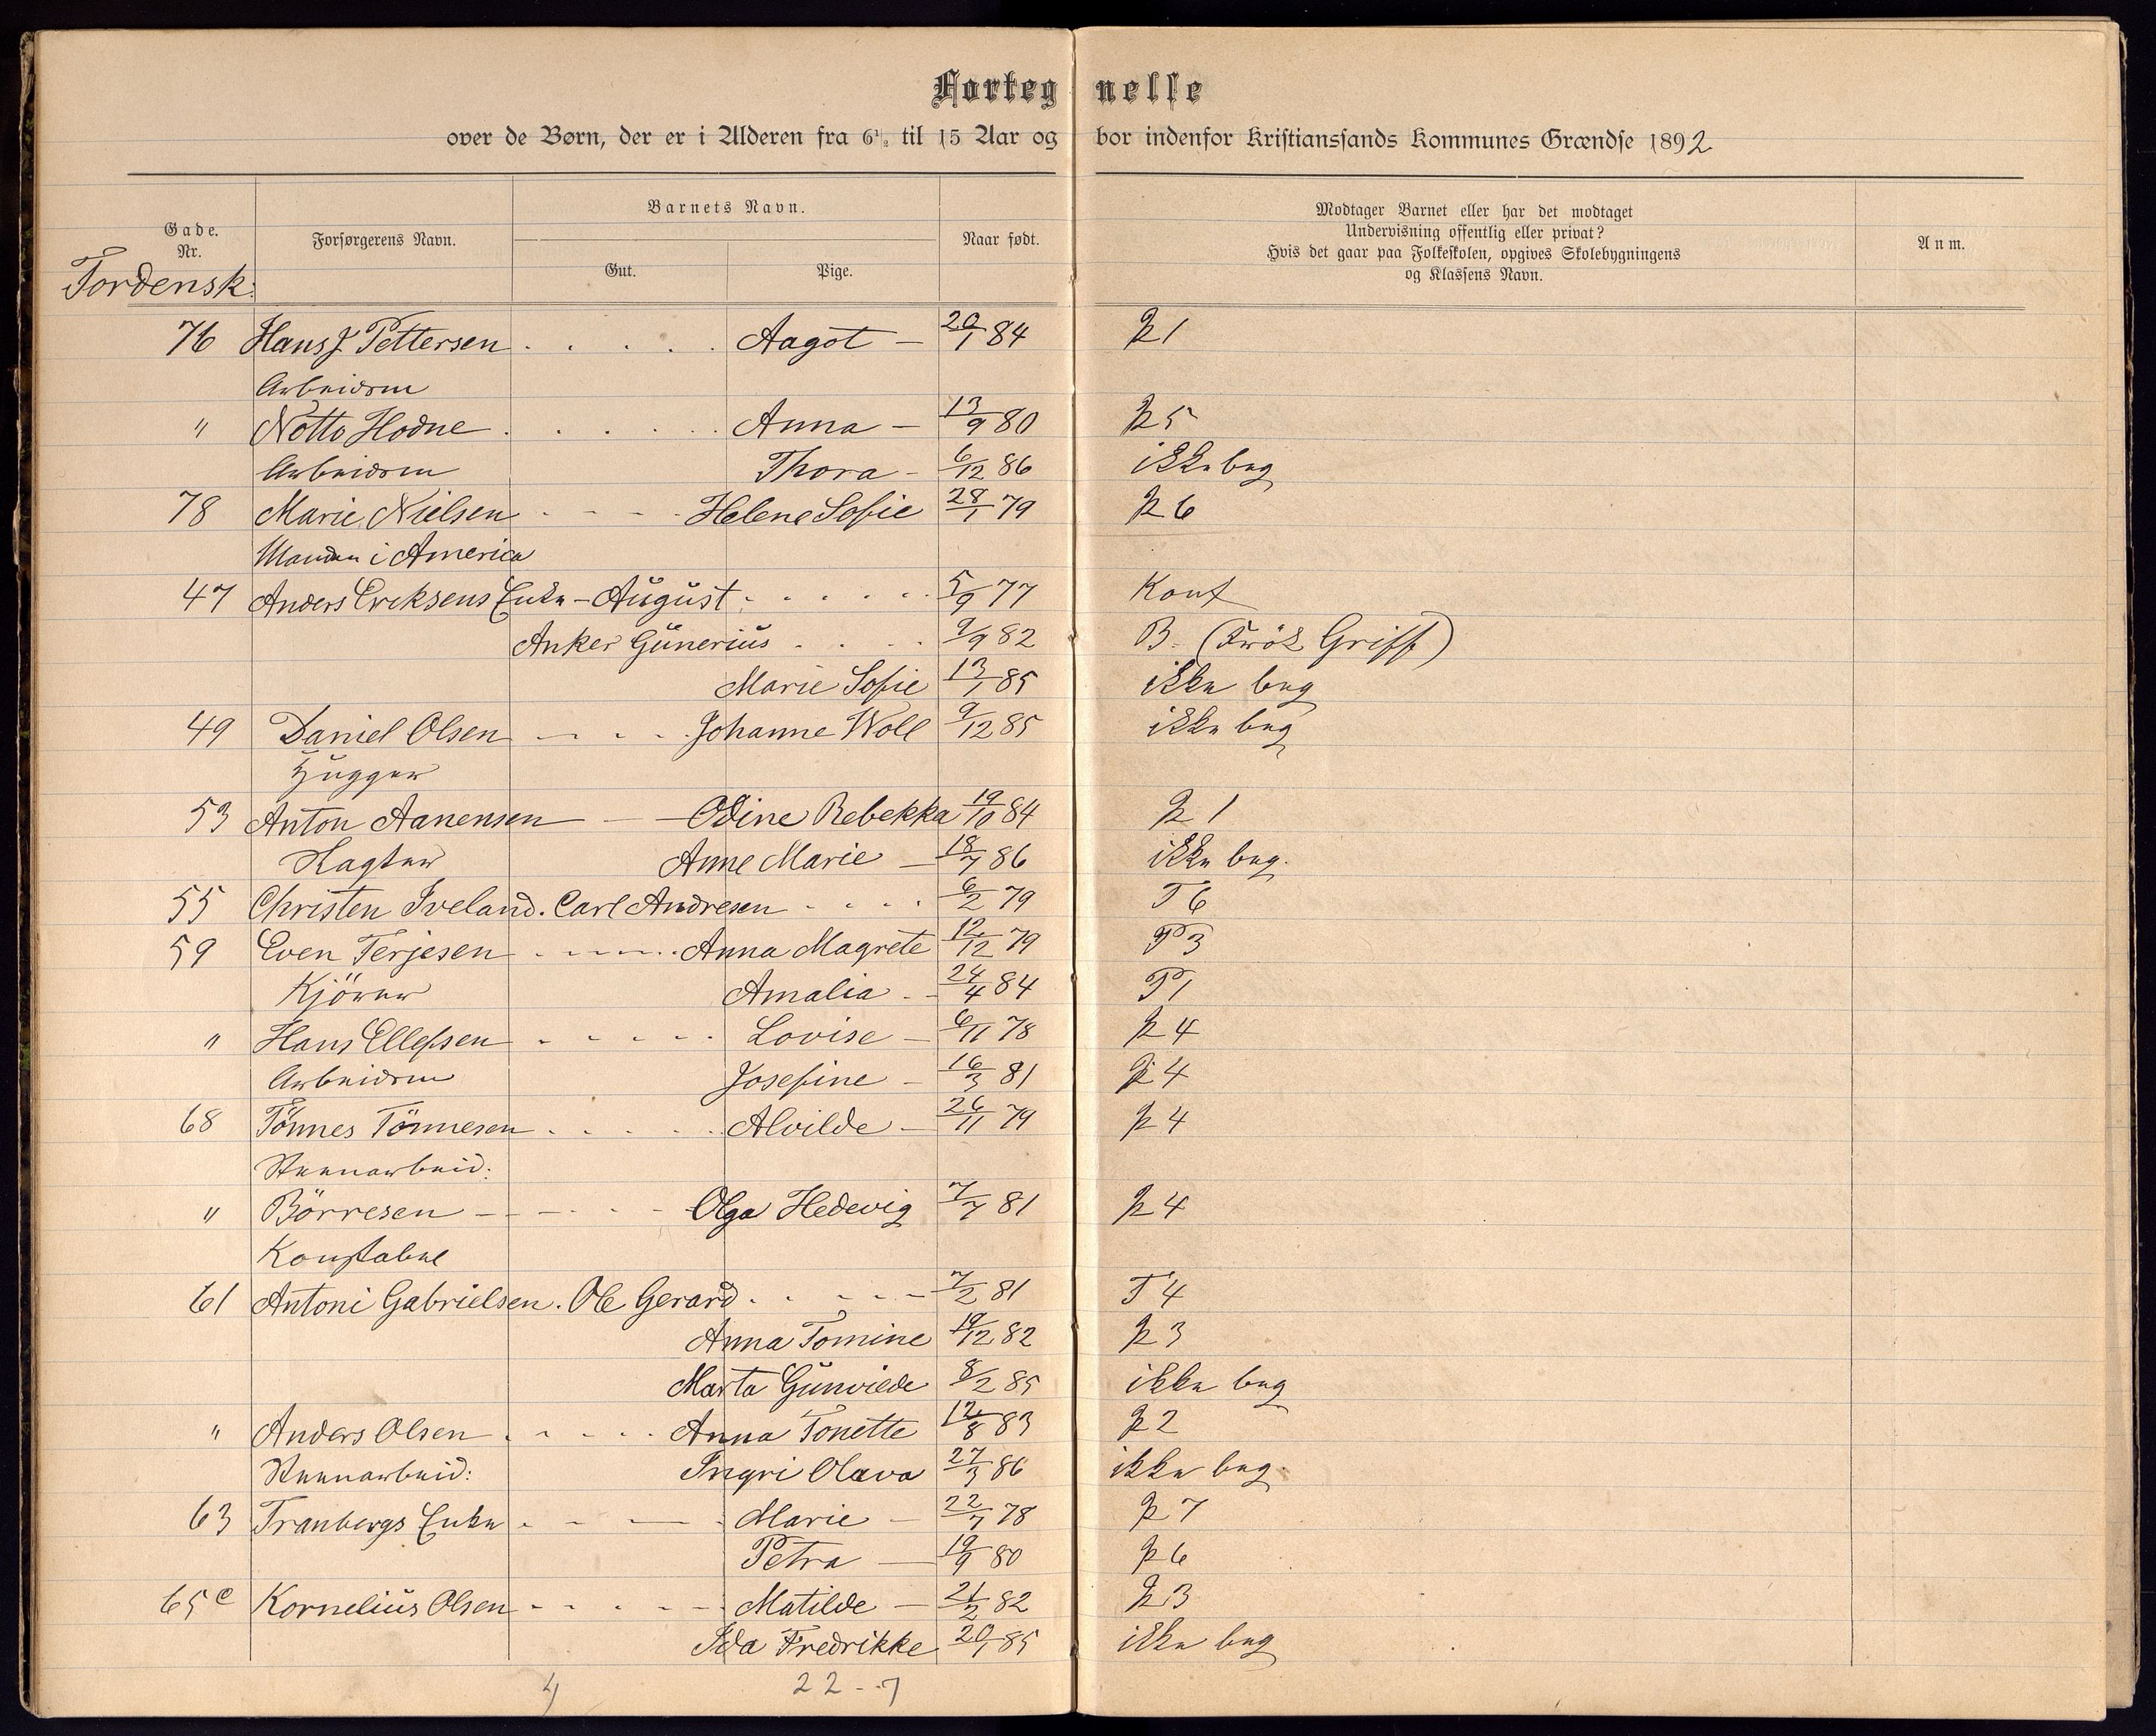 Forteg nelse
over de Børn, der er i Alderen fra 6½ til 15 Aar og bor indenfor Kristianssands Kommunes Grændse 1892
Gade. Nr.
Forsørgerens Navn.
Barnets Navn.
Gut.
Pige.
Naar født.
Modtager Barnet eller har det modtaget
Undervisning offentlig eller privat?
Hvis det gaar paa Folkeskolen, opgives Skolebygningens
og Klassens Navn.
Anm.
Tordensk:
76 Hans J Pettersen . . . . . Aagot — 20/1 84 P 1
Arbeidsm
" Notto Hodne . . . . . . Anna — 13/9 80 P 5
Arbeidsm Thora - 6/12 86 ikke beg
78 Marie Nielsen - - - - Helene Sofie 28/1 79 P 6
Manden i America
47 Anders Eriksens Enke - August . . . . . . 5/9 77 Konf
Anker Günerius . . . . 9/9 82 B. (Frök Griff)
Marie Sofie 13/1 85 ikke beg
49 Daniel Olsen — - - - Johanne Woll 9/12 85 ikke beg
Hugger
53 Anton Aanensen — — Odine Rebekka 19/10 84 P 1
Anne Marie — 18/7 86 ikke beg.
55 Christen Iveland. Carl Andresen - . . . 6/2 79 T 6
59 Even Terjesen - - - - - Anna Magrete 12/12 79 P 3
Kjörer Amalia - - 24/4 84 P 1
" Hans Ellefsen - - - - - Lovise — 6/11 78 P 4
Arbeidsm Josefine - 16/3 81 P 4
68 Tönnes Tönnesen . . . . . Alvilde — 26/11 79 P 4
Steenarbeid:
" Börresen - - - - - Olga Hedevig 7/7 81 P 4
Konstabel
61 Antoni Gabrielsen. Ole Gerard . . . . . - 7/2 81 T 4
Anna Tomine 19/12 82 P 3
Marta Gunvilde 8/2 85 ikke beg
" Anders Olsen . - . . . Anna Tonette 12/8 83 P 2
Steenarbeid: Ingri Olava 27/3 86 ikke beg.
63 Tranbergs Enke . - - — Marie — 22/7 78 P 7
Petra — 19/9 80 P 6
65 c Kornelius Olsen - - - - - Matilde — 21/2 82 P 3
Ida Fredrikke 20/1 85 ikke beg
4 22 - 7